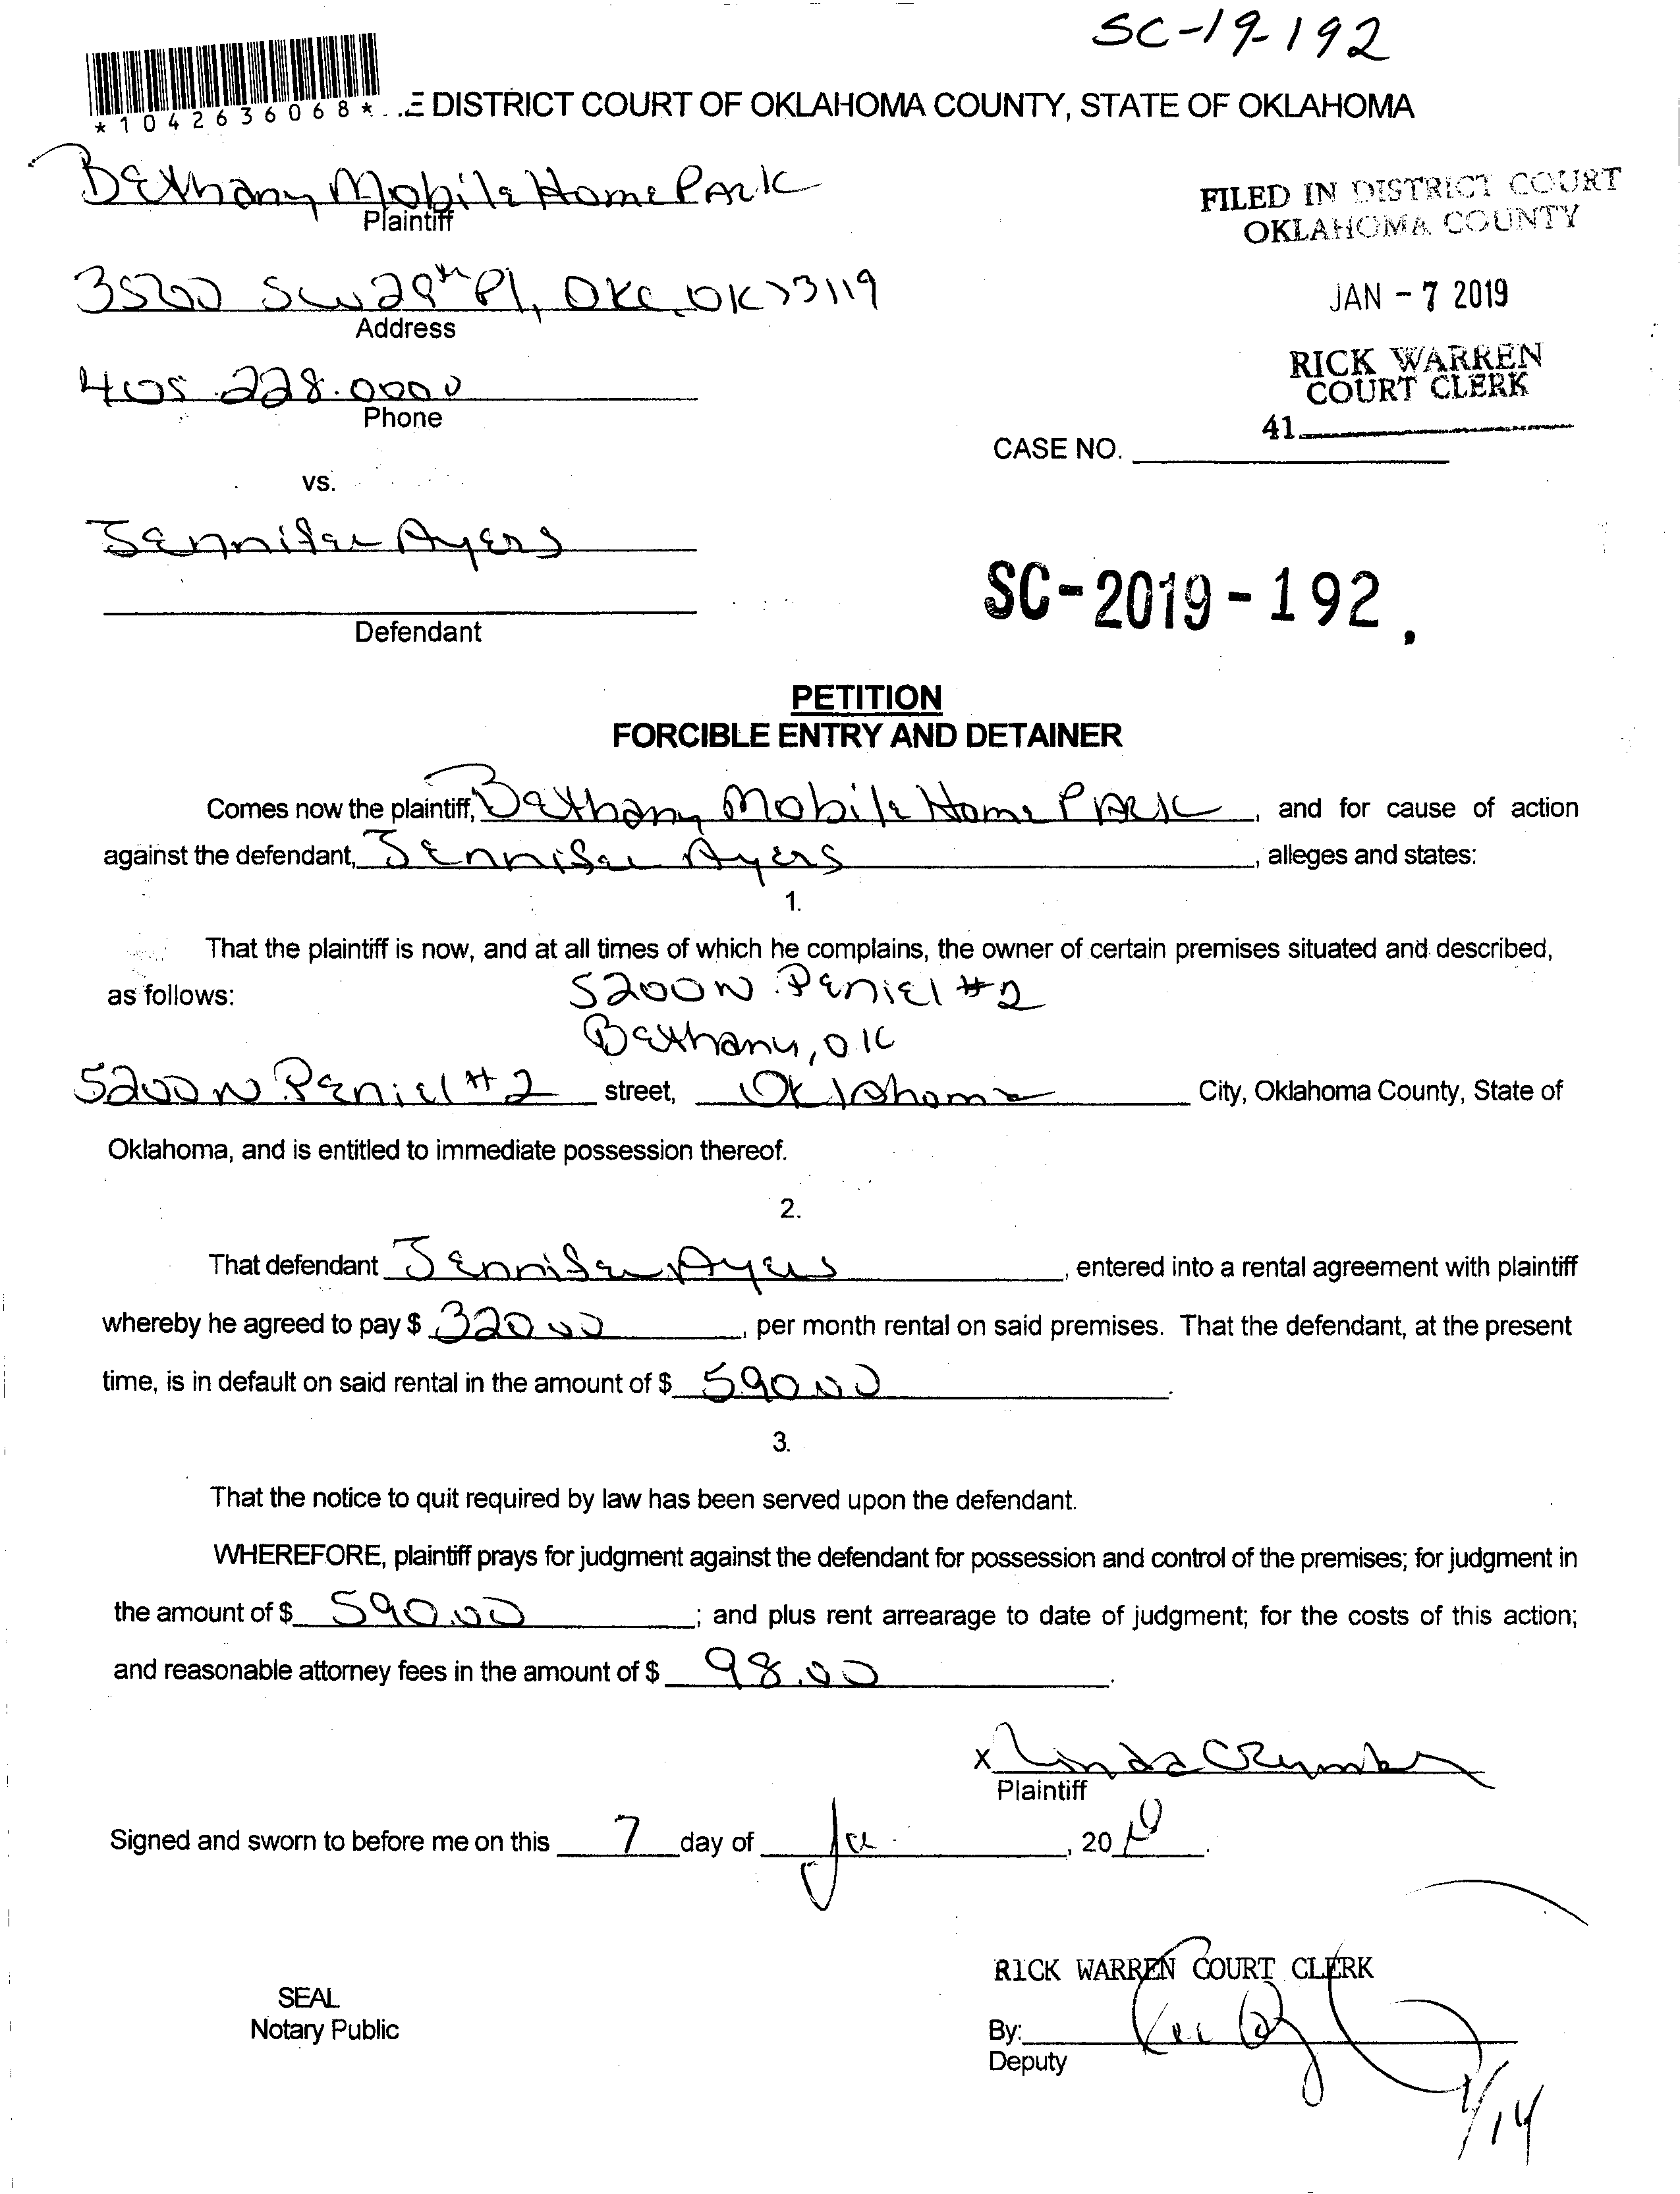 SC-19-192
*1042636068* E DISTRICT COURT OF OKLAHOMA COUNTY, STATE OF OKLAHOMA
Bethany Mobile Home Park
Plaintiff
FILED IN DISTRICT COURT
OKLAHOMA COUNTY
3500 SW 29th Pl, OKC, OK 73119
Address
JAN - 7 2019
RICK WARREN
COURT CLERK
405.228.0000
Phone
41
CASE NO.
vs.
Jennifer Ayers
Defendant
SC-2019-192
PETITION
FORCIBLE ENTRY AND DETAINER
Comes now the plaintiff, Bethany Mobile Home Park, and for cause of action
against the defendant, Jennifer Ayers, alleges and states:
1.
That the plaintiff is now, and at all times of which he complains, the owner of certain premises situated and described,
as follows: 5200 N Peniel #2
Bethany, OK
5200 N Peniel #2 street, Oklahoma City, Oklahoma County, State of
Oklahoma, and is entitled to immediate possession thereof.
2.
That defendant Jennifer Ayers, entered into a rental agreement with plaintiff
whereby he agreed to pay $ 320.00, per month rental on said premises. That the defendant, at the present
time, is in default on said rental in the amount of $ 590.00.
3.
That the notice to quit required by law has been served upon the defendant.
WHEREFORE, plaintiff prays for judgment against the defendant for possession and control of the premises; for judgment in
the amount of $ 590.00; and plus rent arrearage to date of judgment; for the costs of this action;
and reasonable attorney fees in the amount of $ 98.00.
x Linda
Plaintiff
Signed and sworn to before me on this 7 day of Ja, 20
RICK WARREN COURT CLERK
SEAL
Notary Public
By:
Deputy
1/14